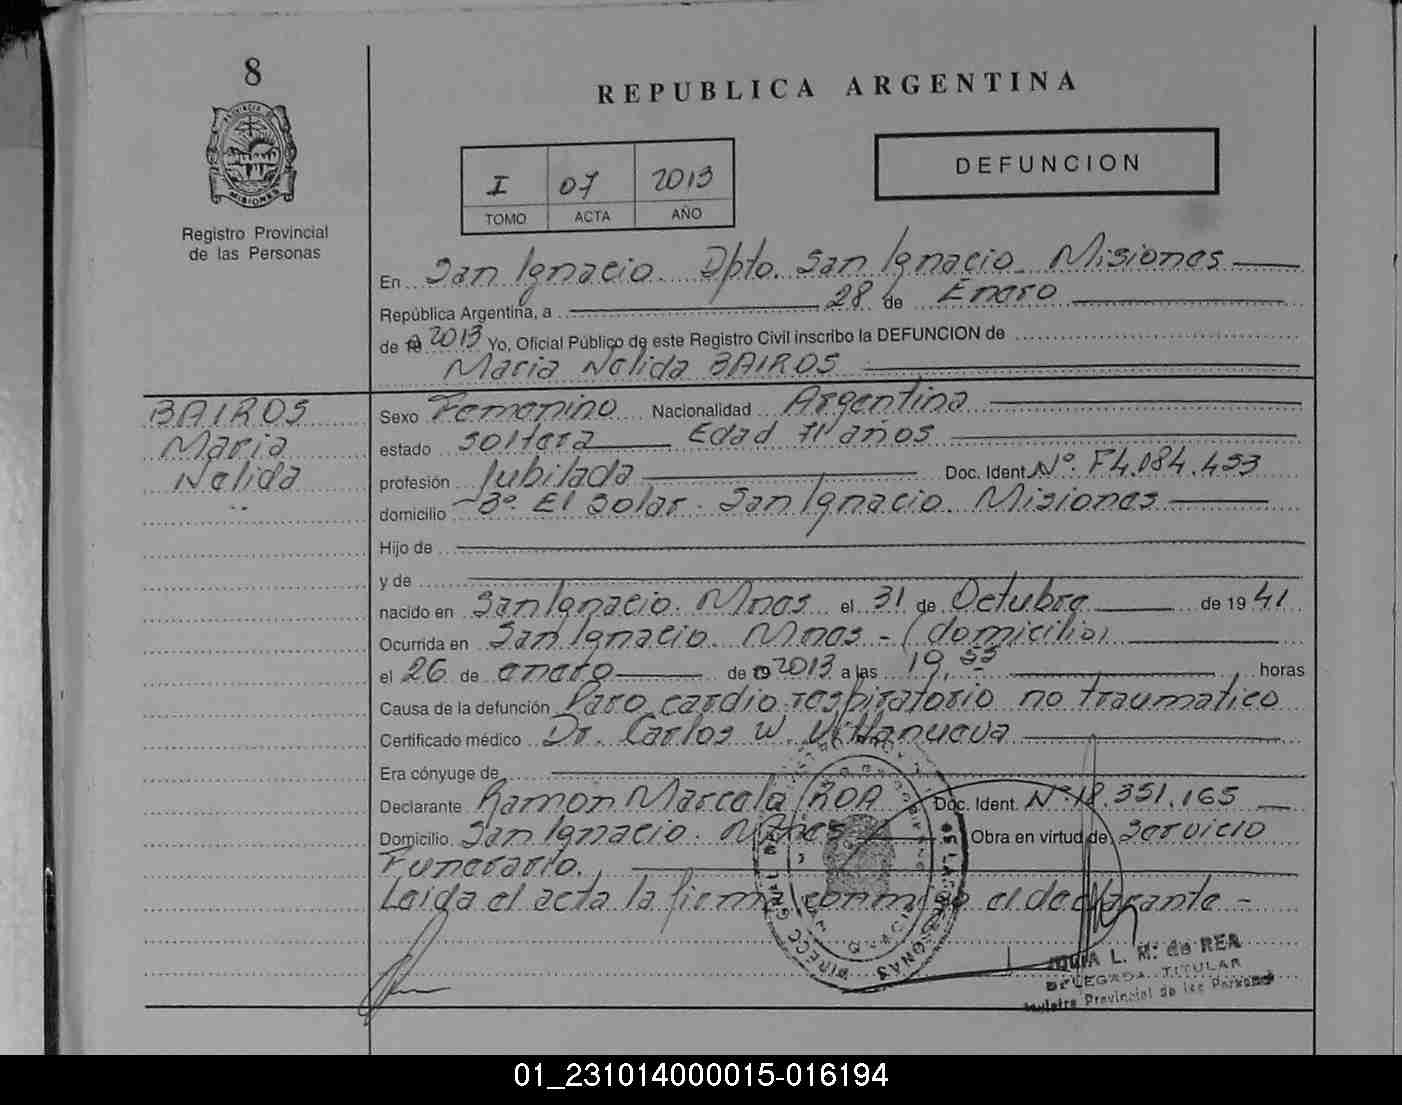 8
REPUBLICA ARGENTINA
PROVINCIA
MISIONES
Registro Provincial
de las Personas
I 07 2013
TOMO ACTA AÑO
DEFUNCION
En San Ignacio. Dpto. San Ignacio. Misiones
República Argentina, a 28 de Enero
de 2013 Yo, Oficial Público de este Registro Civil inscribo la DEFUNCION de
Maria Nelida BAIROS
BAIROS
Maria
Nelida
Sexo Femenino Nacionalidad Argentina
estado soltera Edad 71 años
profesión Jubilada Doc. Ident. Nº. F4.084.453
domicilio Bº. El Solar. San Ignacio. Misiones
Hijo de
y de
nacido en San Ignacio. Mnes el 31 de Octubre de 1941
Ocurrida en San Ignacio. Mnes - (domicilio)
el 26 de enero de 2013 a las 19,55 horas
Causa de la defunción Paro cardio respiratorio no traumatico
Certificado médico Dr. Carlos W. Villanueva
Era cónyuge de
Declarante Ramon Marcelo ROA Doc. Ident. Nº 18.351.165
Domicilio San Ignacio. Mnes Obra en virtud de Servicio
Funerario.
Leida el acta la firma conmigo el declarante -
L. M. de REA
DELEGADA TITULAR
Registro Provincial de las Personas
01_231014000015-016194